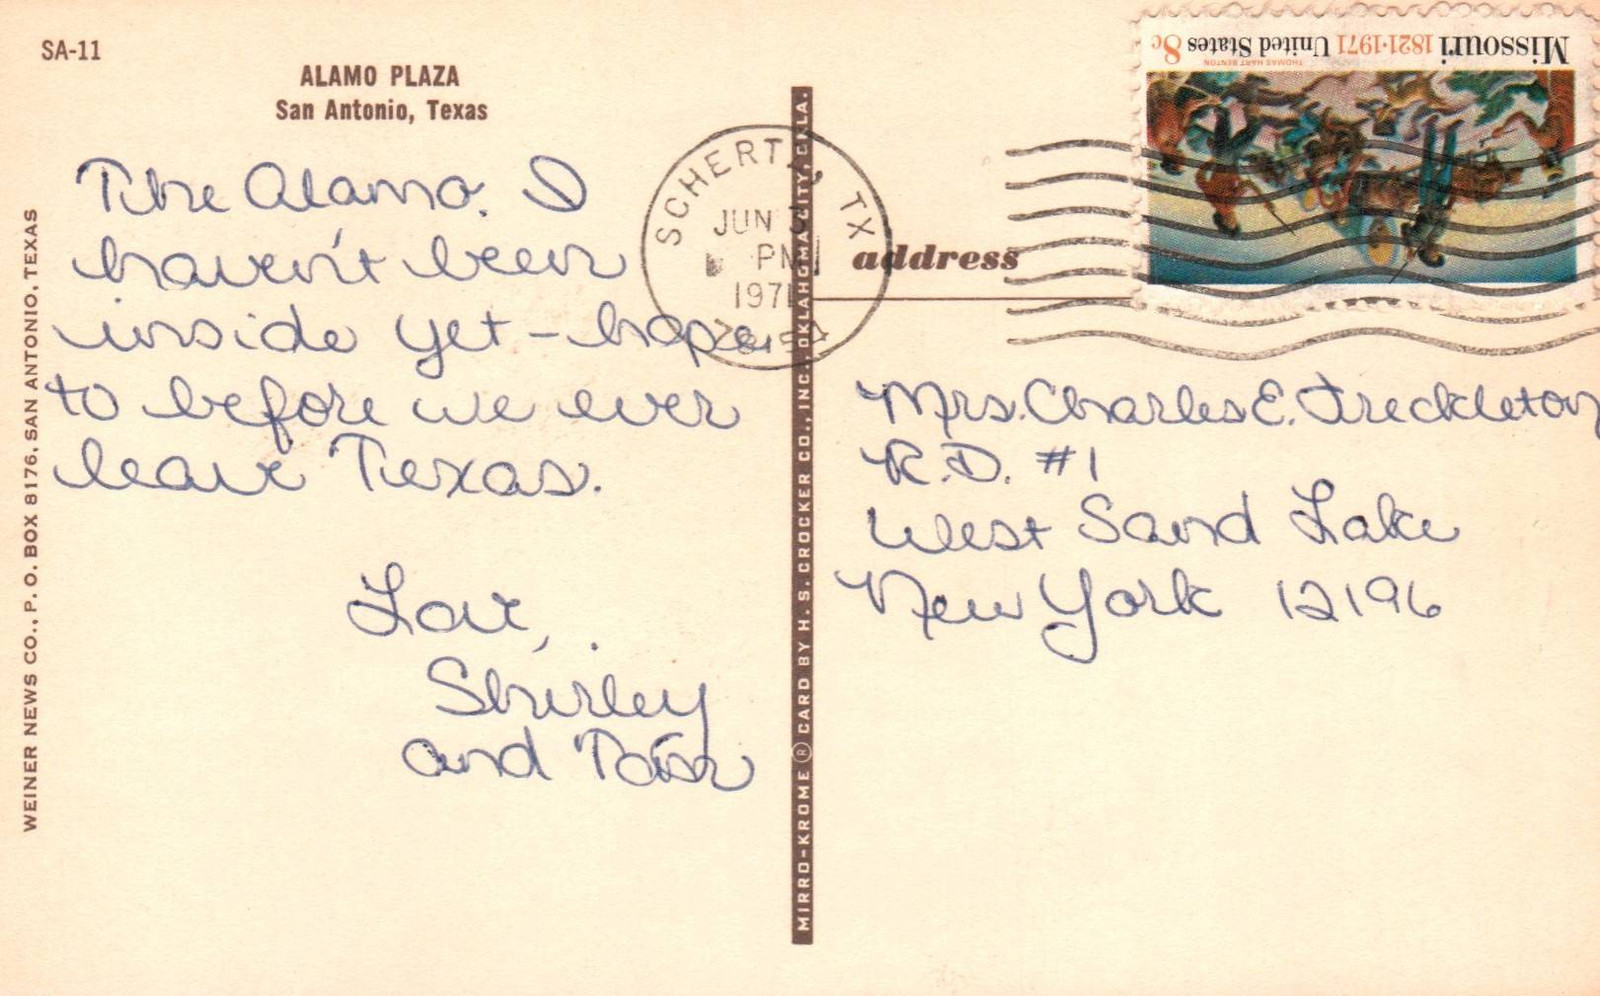 SA-11
ALAMO PLAZA
San Antonio, Texas
The Alamo. I
haven't been
inside yet - hope
to before we ever
leave Texas.
Love,
Shirley
and
WEINER NEWS CO., P. O. BOX 8176, SAN ANTONIO, TEXAS
MIRRO-KROME ® CARD BY H. S. CROCKER CO., INC. OKLAHOMA CITY, OKLA.
SCHERTZ, TX
JUN 3
PM
1971
address
Missouri 1821·1971 United States 8c
THOMAS HART BENTON
Mrs. Charles E. Freckleton
R.D. #1
West Sand Lake
New York 12196